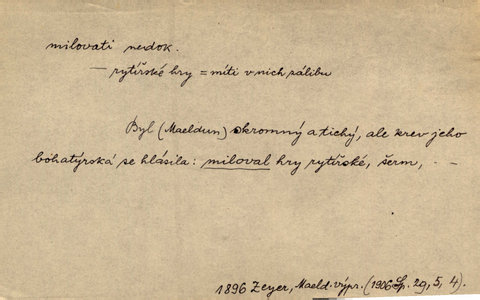 milovati nedok.
— rytířské hry = míti v nich zálibu
Byl (Maeldun) skromný a tichý, ale krev jeho
bohatýrská se hlásila: miloval hry rytířské, šerm, - -
1896 Zeyer, Maeld. výpr. (1906 Sp. 29, 5, 4).